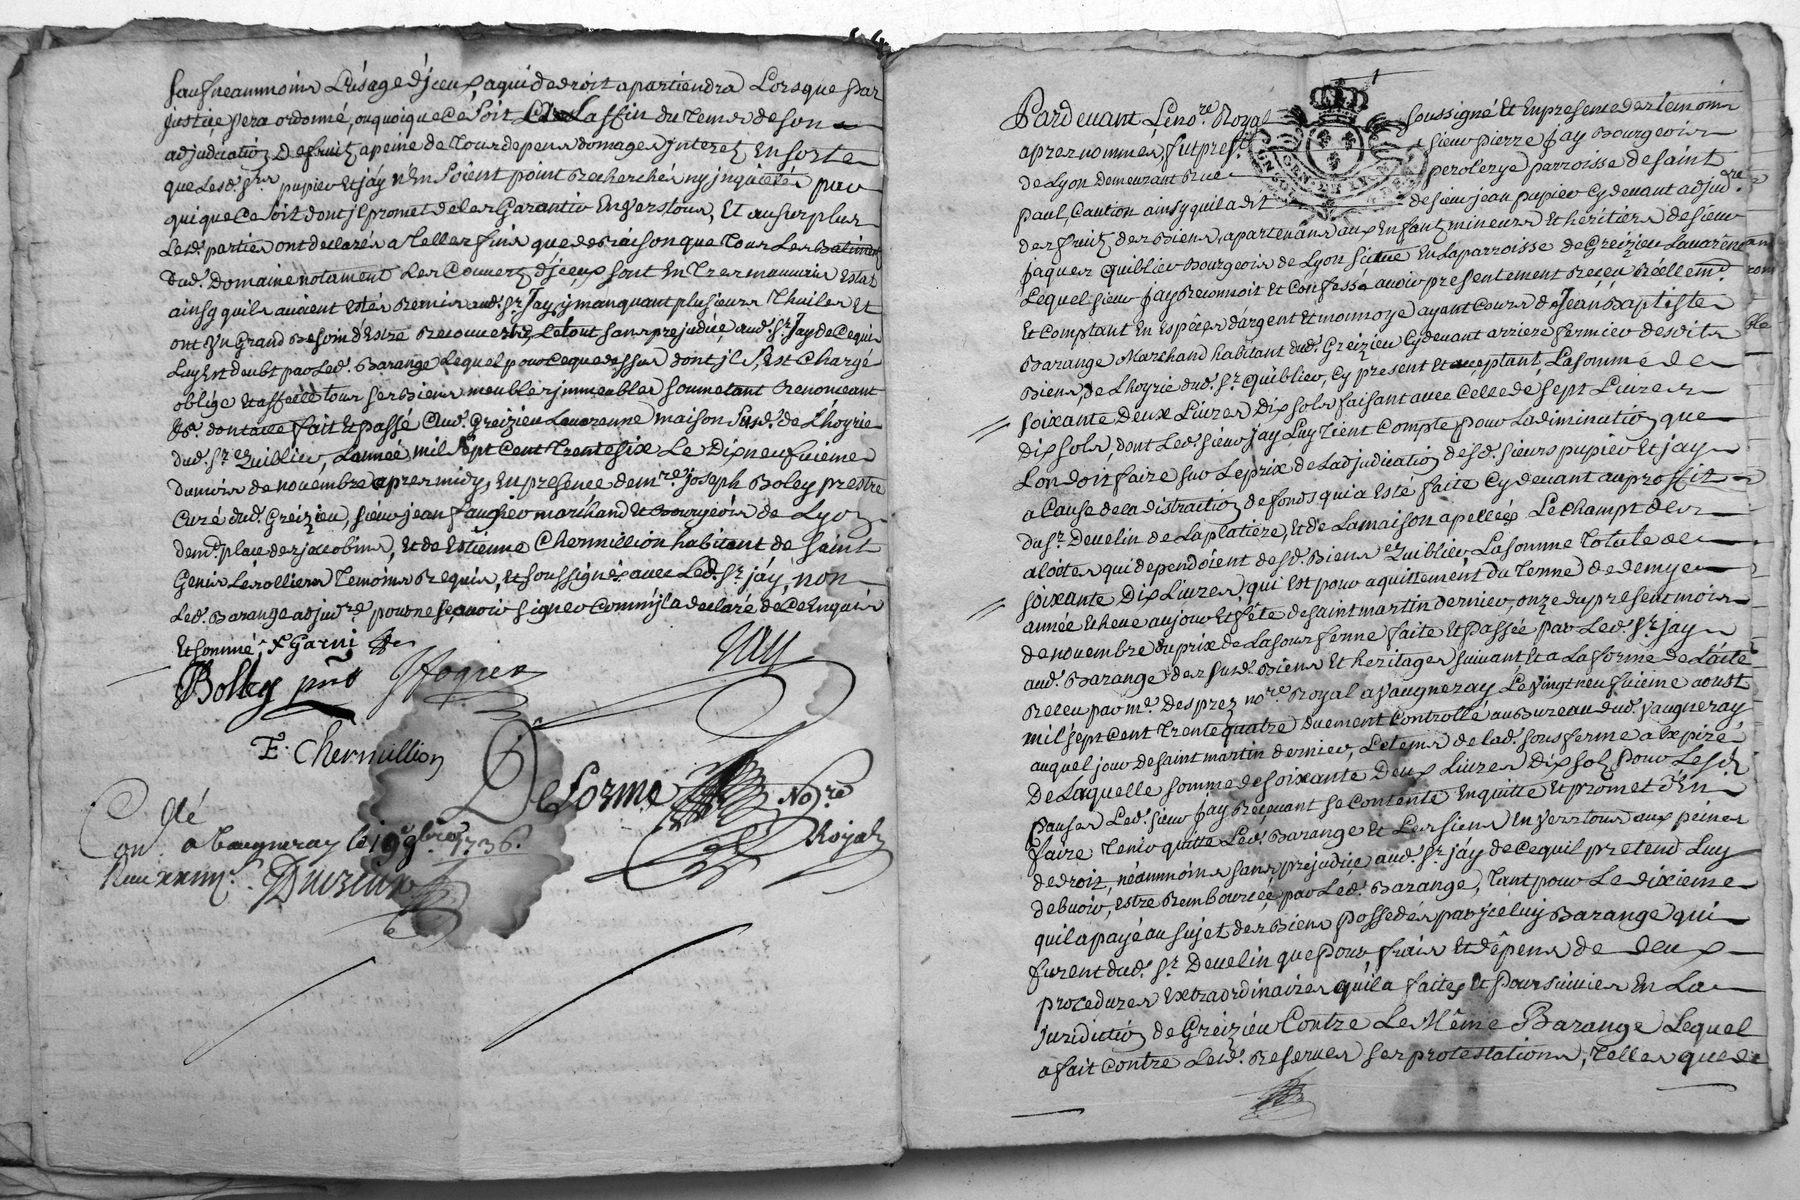 sauf neammoins L'usage d'jceux, a qui de droit apartiendra Lorsque par
justice sera ordonné, ou quoique ce soit a Laffin du tems de son
adjudication de fruitz a peine de tous depens domages jnteretz En sorte
que Lesd. srs pupier Et jay n'En soient point Recherchés ny jnquietés par
qui que ce soit dont jl promet de les Garantir Envers tous, Et au surplus
Lesd. parties ont declarés a telles fins que de Raison que tous Les Batimens
dud. Domaine notament Les Couvertz d'jceux sont En tres mauvais Estat
ainsy quils avoient Estés Remis aud. sr Jay, y manquant plusieurs thuiles Et
ont un Grand Besoin d'Estre Recouverts, Le tout sans prejudice aud. sr Jay de ce qui
Luy Est deubt par Led. Barange Lequel pour ce que dessus dont jl s'Est Chargé
oblige Et affecte tous ses Biens meubles jmmeubles soumetant Renonceant
&c. dont acte fait Et Passé Aud. Greizieu Lavarenne maison susd. de L'hoyrie
dud. sr Quiblier, L'année mil sept Cent trente six Le Dix neufvieme
du mois de novembre apres midy, En presence de mre joseph Boley prestre
Curé dud. Greizieu, sieur jean faugier marchand Et Bourgeois de Lyon
demt. place des jacobins, Et de Estienne Chermillion habitant de saint
Genis Lérollieres temoins Requis, Et soussignéz avec Led. sr jay, non
Led. Barange adjudre. pour ne sçavoir signer Comm'jl a declaré de ce Enquis
Et sommé, Garni
Bolley
Jay
E. Chermillion
DeLorme Nore
Royal
Conlé
a Vaugneray le 19e 9bre 1736.
Pardevant Le nore. Royal soussigné Et En presence des temoins
apres nommés, fut prest. sieur pierre Jay Bourgeois
de Lyon demeurant Rue perolerye parroisse de saint
paul, Caution ainsy quil a dit de sieur jean pupier Cy devant adjudre.
des fruitz des Biens apartenans aux Enfantz mineurs Et héritiers de sieur
jaques Quiblier Bourgeois de Lyon situés En La parroisse de Greizieu Lavarenne
Lequel sieur jay Reconnoit Et Confesse avoir presentement Receu Réellemt.
Et Comptant En Espêces d'argent Et monnoye ayant Cours de Jean Baptiste
Barange Marchand habitant dud. Greizieu Cy devant arriere fermier desdits
Biens, de L'hoyrie dud. sr Quiblier, Cy present Et acceptant, La somme de
soixante Deux Livres Dix sols faisant avec Celle de sept Livres
dix sols, dont Led. sieur jay Luy tient Compte pour La diminution que
L'on doit faire sur Le prix de L'adjudication desd. sieurs pupier Et jay
a Cause de la distraction de fonds qui a Esté faite Cy devant au proffit
du sr. Develin de La platiere, Et de La maison apellée Le champt de
alotes qui dependoient desd. Biens Quiblier La somme totale de
soixante Dix Livres, qui Est pour aquittement du terme de demye
année Echeue au jour Et fête de saint martin dernier, onze du present mois
de novembre du prix de La sous ferme faite Et Passée par Led. sr. jay
aud. Barange des susd. Biens Et heritages suivant Et a La forme de L'acte
Receu par me. Desprez nore Royal a Vaugneray Le vingt neufvieme aoust
mil sept Cent trente quatre duement Controllé au Bureau dud. Vaugneray
auquel jour de saint martin dernier, Le tems de lad. sous ferme a Expiré
De Laquelle somme de soixante Deux Livres Dix solz Pour Lesd.
Causes Led. sieur jay Recevant se Contente En quitte Et promet d'En
faire tenir quitte Led. Barange Et Les siens Envers tous aux peines
de droit, néammoins sans prejudice aud. sr. jay de ce quil pretend Luy
devoir, Estre Remboursée par Led. Barange, tant pour Le dixieme
quil a payé au sujet des Biens Possedés par yceluy Barange qui
furent dud. sr. Develin que Pour frais Et dépens de deux
procedures Extraordinaires quil a faites Et Poursuivies En La
juridiction de Greizieu Contre Le Même Barange Lequel
a fait Contre Lesd. Reserves ses protestations, telles que de